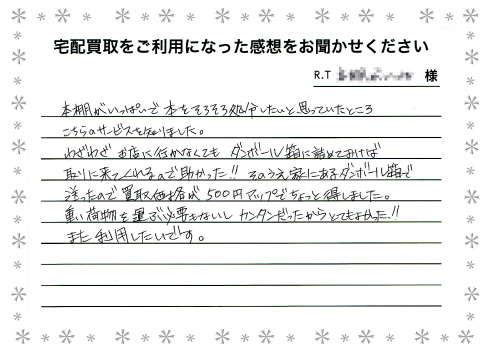 宅配買取をご利用になった感想をお聞かせください
R.T 様
本棚がいっぱいで本をそろそろ処分したいと思っていたところ
こちらのサービスを知りました。
わざわざお店に行かなくてもダンボール箱に詰めておけば
取りに来てくれるので助かった!!そのうえ家にあるダンボール箱で
送ったので買取価格が500円アップでちょっと得しました。
重い荷物を運ぶ必要もないしカンタンだったからとてもよかった!!
また利用したいです。